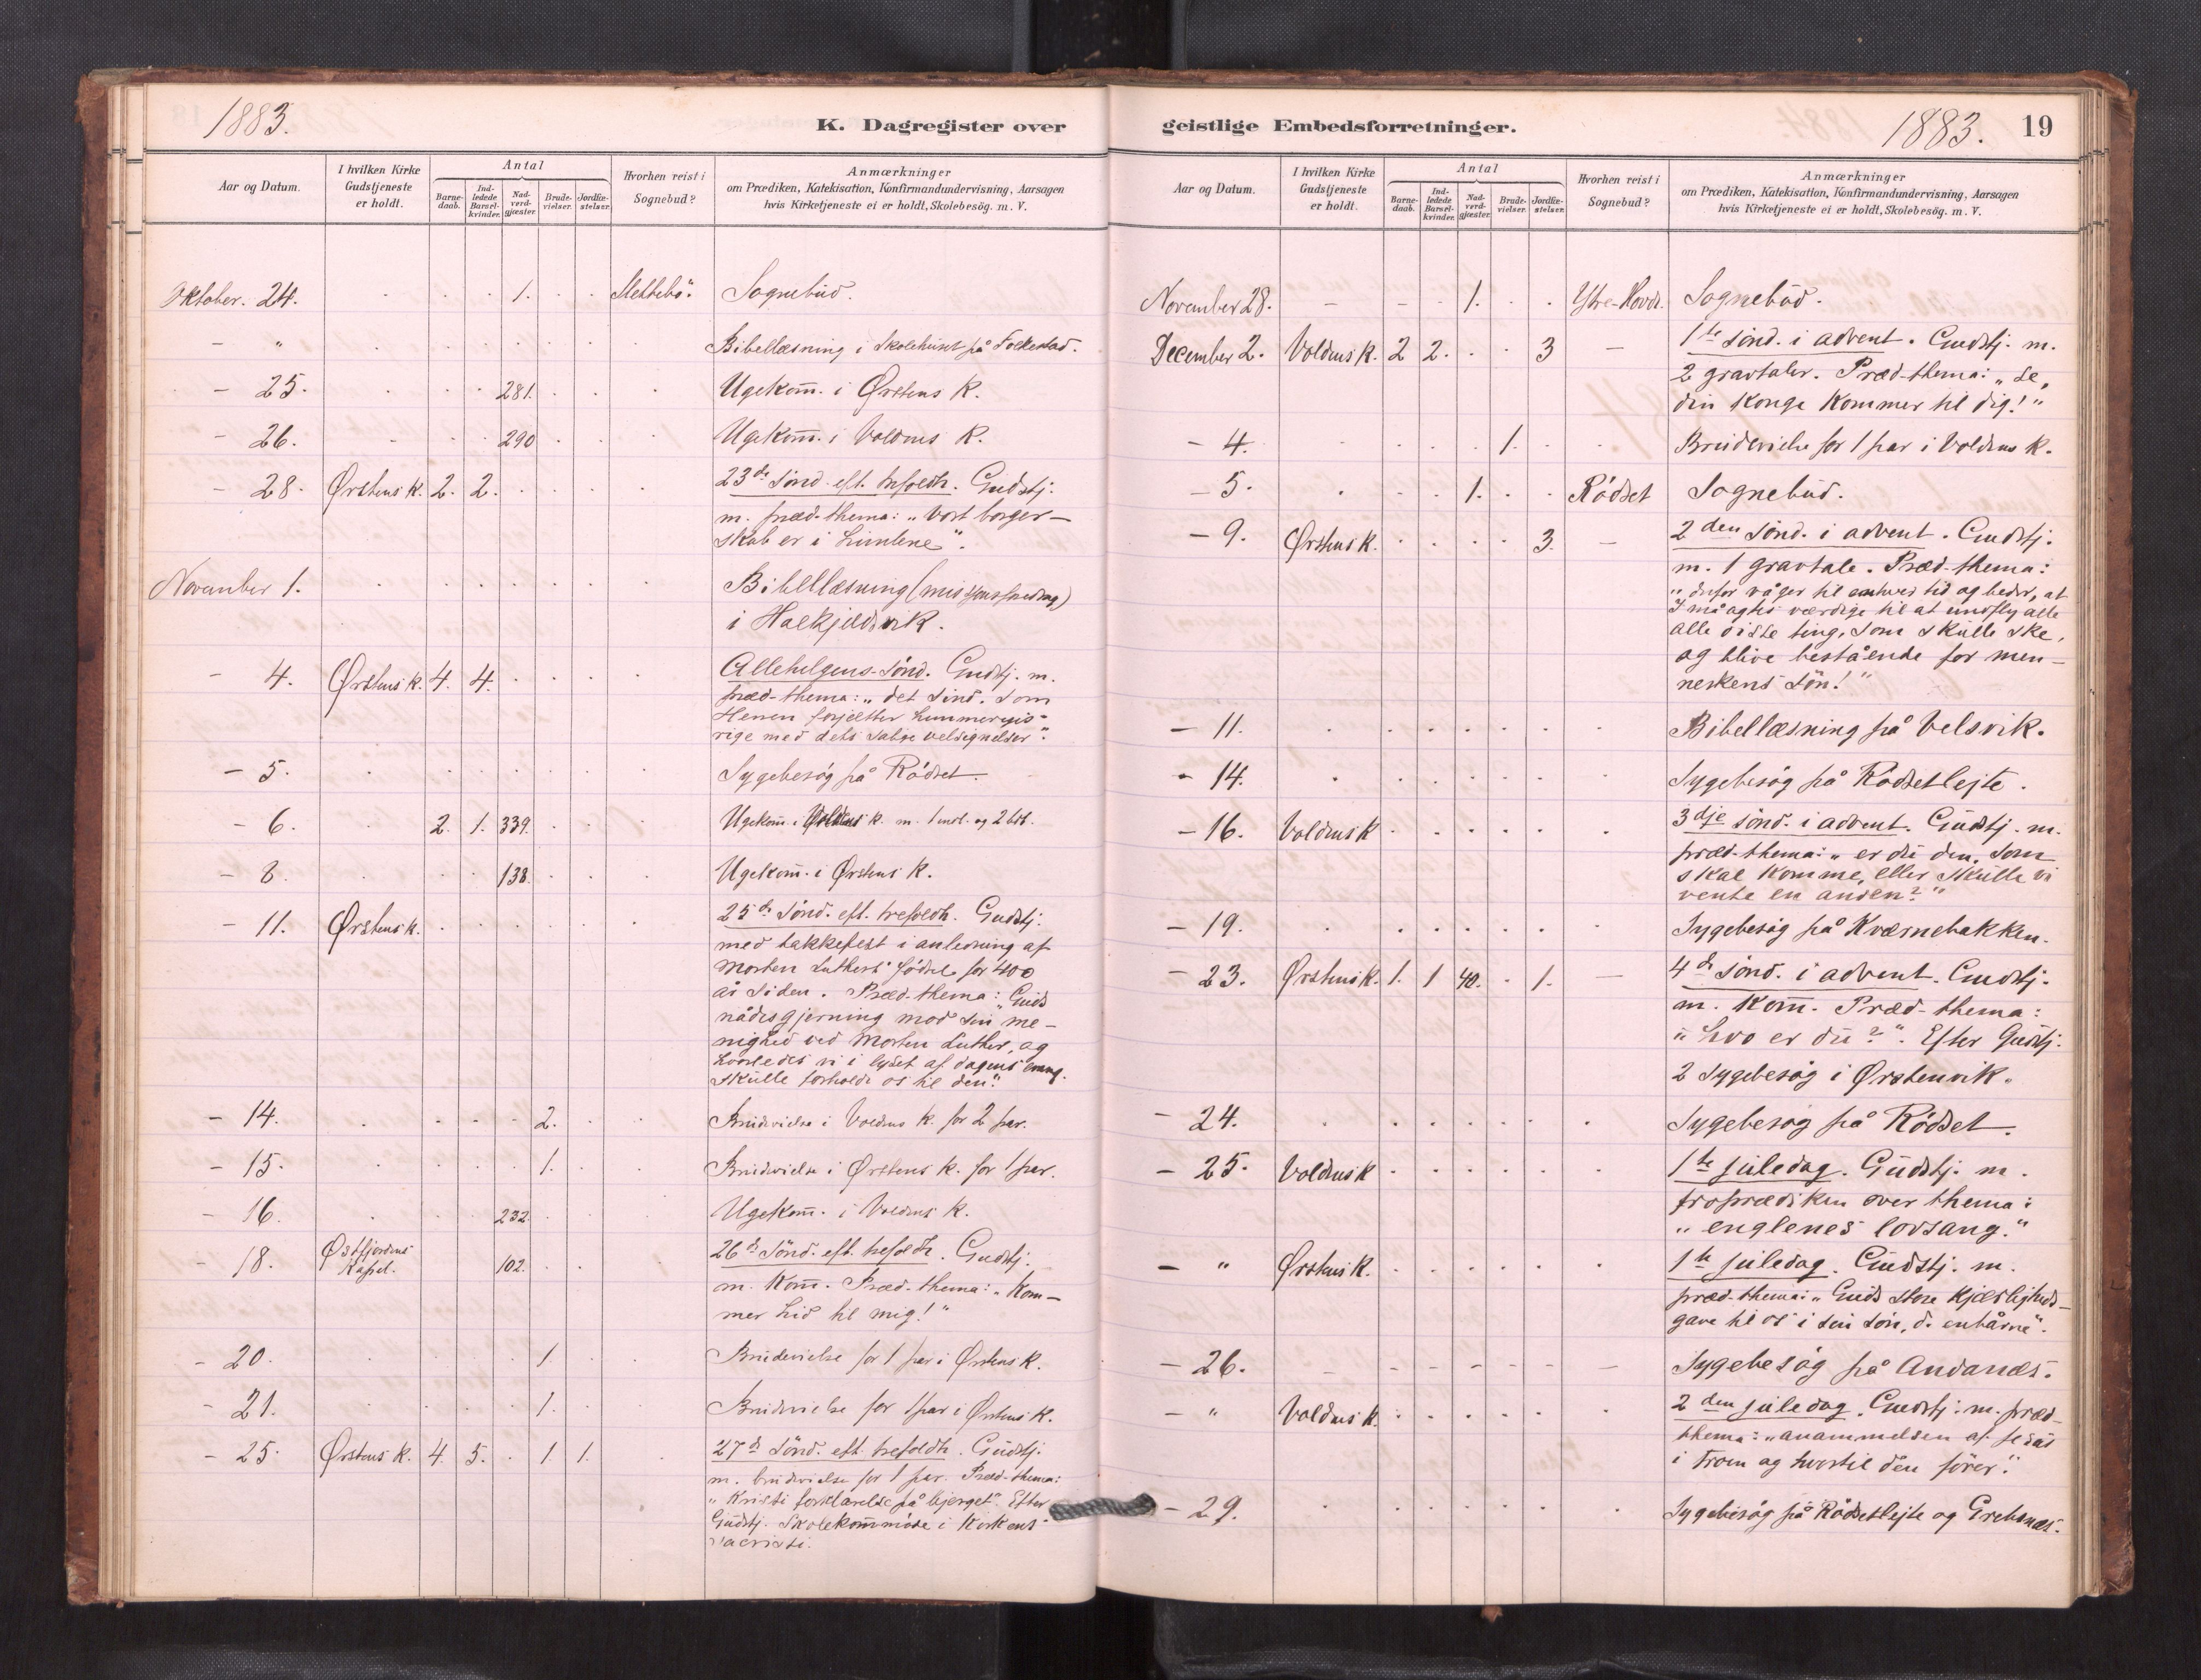 1883.
K. Dagregister over
Aar og Datum.
I hvilken Kirke Gudstjeneste er holdt.
Antal
Barne-daab.
Ind-ledede Barsel-kvinder.
Nad-verd-gjæster.
Brude-vielser.
Jordfæ-stelser.
Hvorhen reist i Sognebud?
Anmærkninger
om Prædiken, Katekisation, Konfirmandundervisning, Aarsagen
hvis Kirketjeneste ei er holdt, Skolebesög. m. V.
Oktober. 24. 1. Sognebud.
- " Bibellæsning i Skolehuset på Folkestad.
- 25. 281. Ugekom. i Ørstens K.
- 26. 290 Ugekom. i Voldens K.
- 28. Ørstens K. 2. 2. 23de sønd. eft. trefoldh. Gudstj.
m. præd-thema: "Vort borger-
skab er i himlene".
November 1. Bibellæsning (missionsforedrag)
i Halkjeldsvik.
- 4. Ørstens K. 4. 4. Allehelgens-sønd. Gudstj. m.
præd-thema: "det sind, som
Herren forjætter himmeriges
rige med dets salige velsignelser".
- 5. Sygebesøg på Rødset.
- 6. 2. 1. 339. Ugekom. i Voldens K. m. 1 indl. og 2 bdb.
- 8. 138. Ugekom. i Ørstens K.
- 11. Ørstens K. 25de sønd. eft. trefoldh. Gudstj.
med takkefest i anledning af
Morten Luthers fødsel for 400
år siden. Præd-thema: "Guds
nådesgjerning mod sin me-
nighed ved Morten Luther, og
hvorledes vi i lyset af dagens evang.
skulle forholde os til den".
- 14. 2. Brudevielse i Voldens K. for 2 par.
- 15. 1. Brudevielse i Ørstens K. for 1 par.
- 16. 232. Ugekom. i Voldens K.
- 18. Østfjordens Kapel. 102. 26de sønd. eft. trefoldh. Gudstj.
m. Kom. Præd-thema: "Kom-
mer hid til mig!"
- 20. 1. Brudevielse for 1 par i Ørstens K.
- 21. 1. Brudevielse for 1 par i Ørstens K.
- 25. Ørstens K. 4. 5. 1 1. 27de sønd. eft. trefoldh. Gudstj.
m. brudevielse for 1 par. Præd-thema:
"Kristi forklarelse på bjerget". Efter
Gudstj. Skolekommøde i Kirkens
sacristi.
geistlige Embedsforretninger.
1883. 19
Aar og Datum.
I hvilken Kirke Gudstjeneste er holdt.
Antal
Barne-daab.
Ind-ledede Barsel-kvinder.
Nad-verd-gjæster.
Brude-vielser.
Jordfæ-stelser.
Hvorhen reist i Sognebud?
Anmærkninger
om Prædiken, Katekisation, Konfirmandundervisning, Aarsagen
hvis Kirketjeneste ei er holdt, Skolebesög. m. V.
November 28. 1. Ytre-Hovde. Sognebud.
December 2. Voldens K. 2 2. 3 1te sønd. i advent. Gudstj. m.
2 gravtaler. Præd-thema: "Se,
din Konge kommer til dig!"
- 4. 1. Brudevielse for 1 par i Voldens K.
- 5. 1. Rødset Sognebud.
- 9. Ørstens K. 3. 2den sønd. i advent. Gudstj.
m. 1 gravtale. Præd-thema:
"derfor våger til enhver tid og beder, at
I må agtes værdige til at undfly alle
alle disse ting, som skulle ske,
og blive bestående for men-
neskens søn!"
- 11. Bibellæsning på Velsvik.
- 14. Sygebesøg på Rødsetlejte.
- 16. Voldens K 3dje sønd. i advent. Gudstj. m.
præd-thema: "er du den, som
skal komme, eller skulle vi
vente en anden?"
- 19. Sygebesøg på Kværnebakken.
- 23. Ørstens K. 1. 1 40. 1. 4de sønd. i advent. Gudstj.
m. Kom. Præd-thema:
"hvo er du?". Efter Gudstj.
2 sygebesøg i Ørstenvik.
- 24. Sygebesøg på Rødset.
- 25. Voldens K 1te juledag. Gudstj. m.
froprædiken over thema:
"englenes lovsang."
- " Ørstens K. 1te juledag. Gudstj. m.
præd-thema: "Guds store kjærligheds-
gave til os i sin søn, d. enbårne".
- 26. Sygebesøg på Andanæs.
- " Voldens K. 2den juledag. Gudstj. m. præd-
thema: "anammelsen af Jesus
i troen og hvortil den fører".
- 29. Sygebesøg på Rødsetlejte og Grebsnæs.